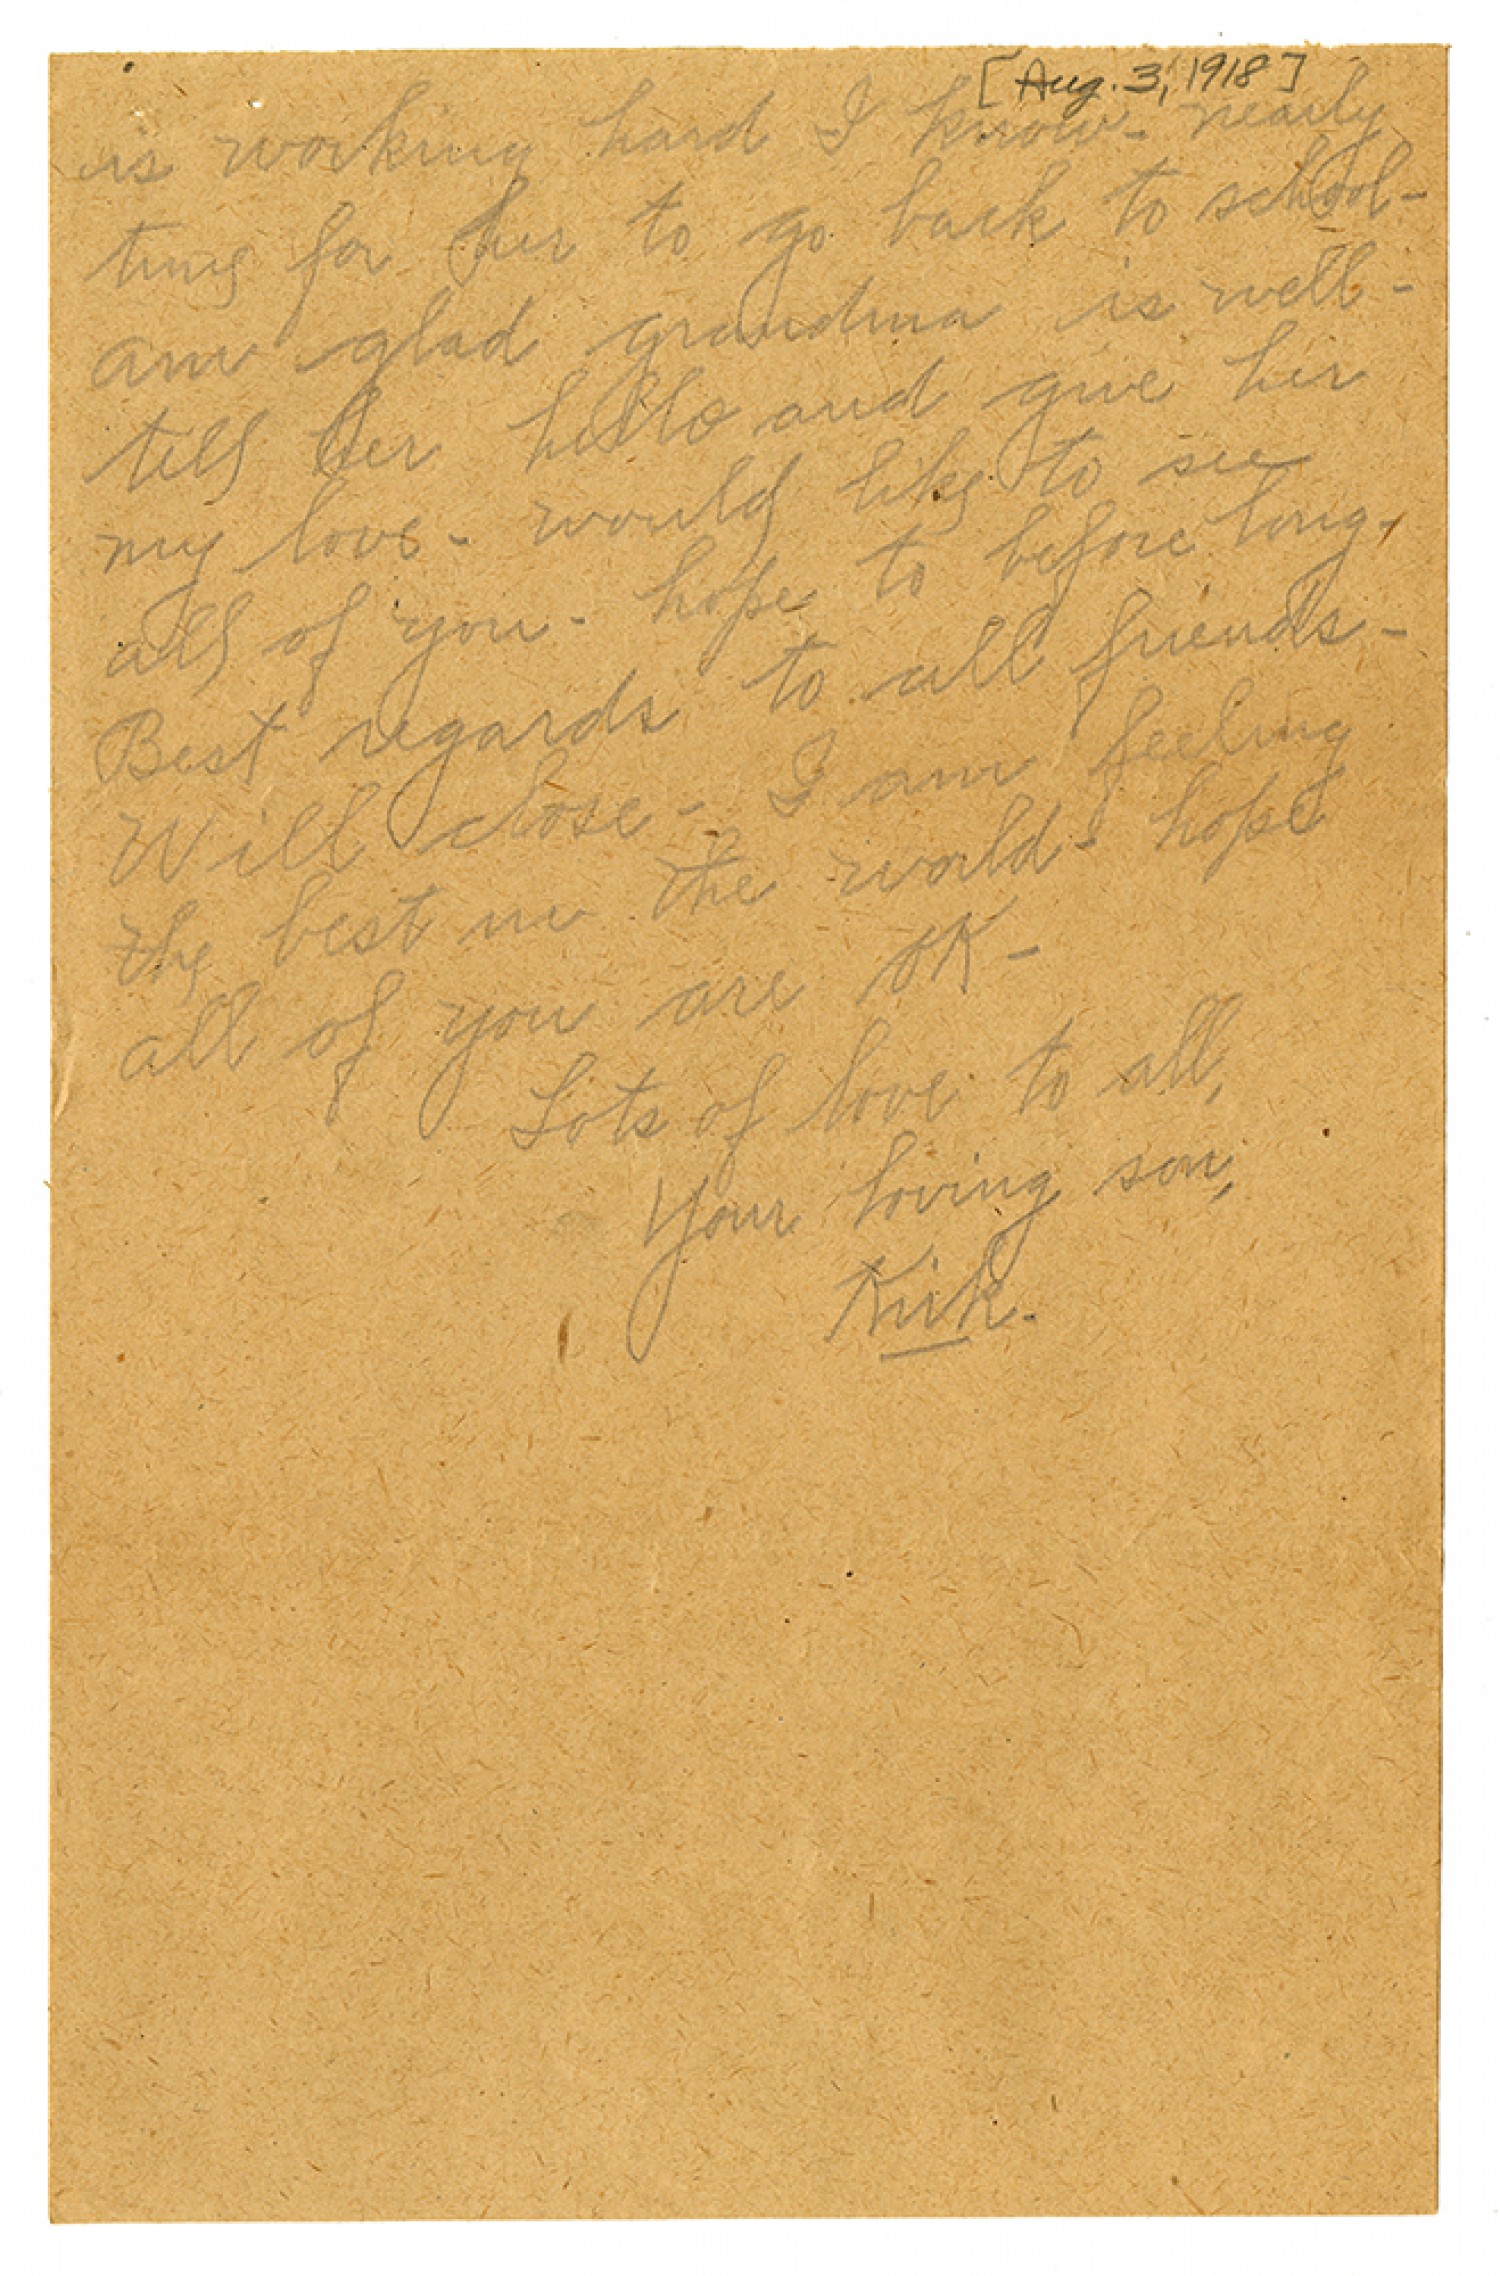 [Aug. 3, 1918]
is working hard I know - nearly
time for her to go back to school -
am glad grandma is well -
tell her hello and give her
my love - would like to see
all of you - hope to before long.
Best regards to all friends -
Will close - I am feeling
the best in the world - hope
all of you are OK -
Lots of love to all,
Your loving son,
Kirk.